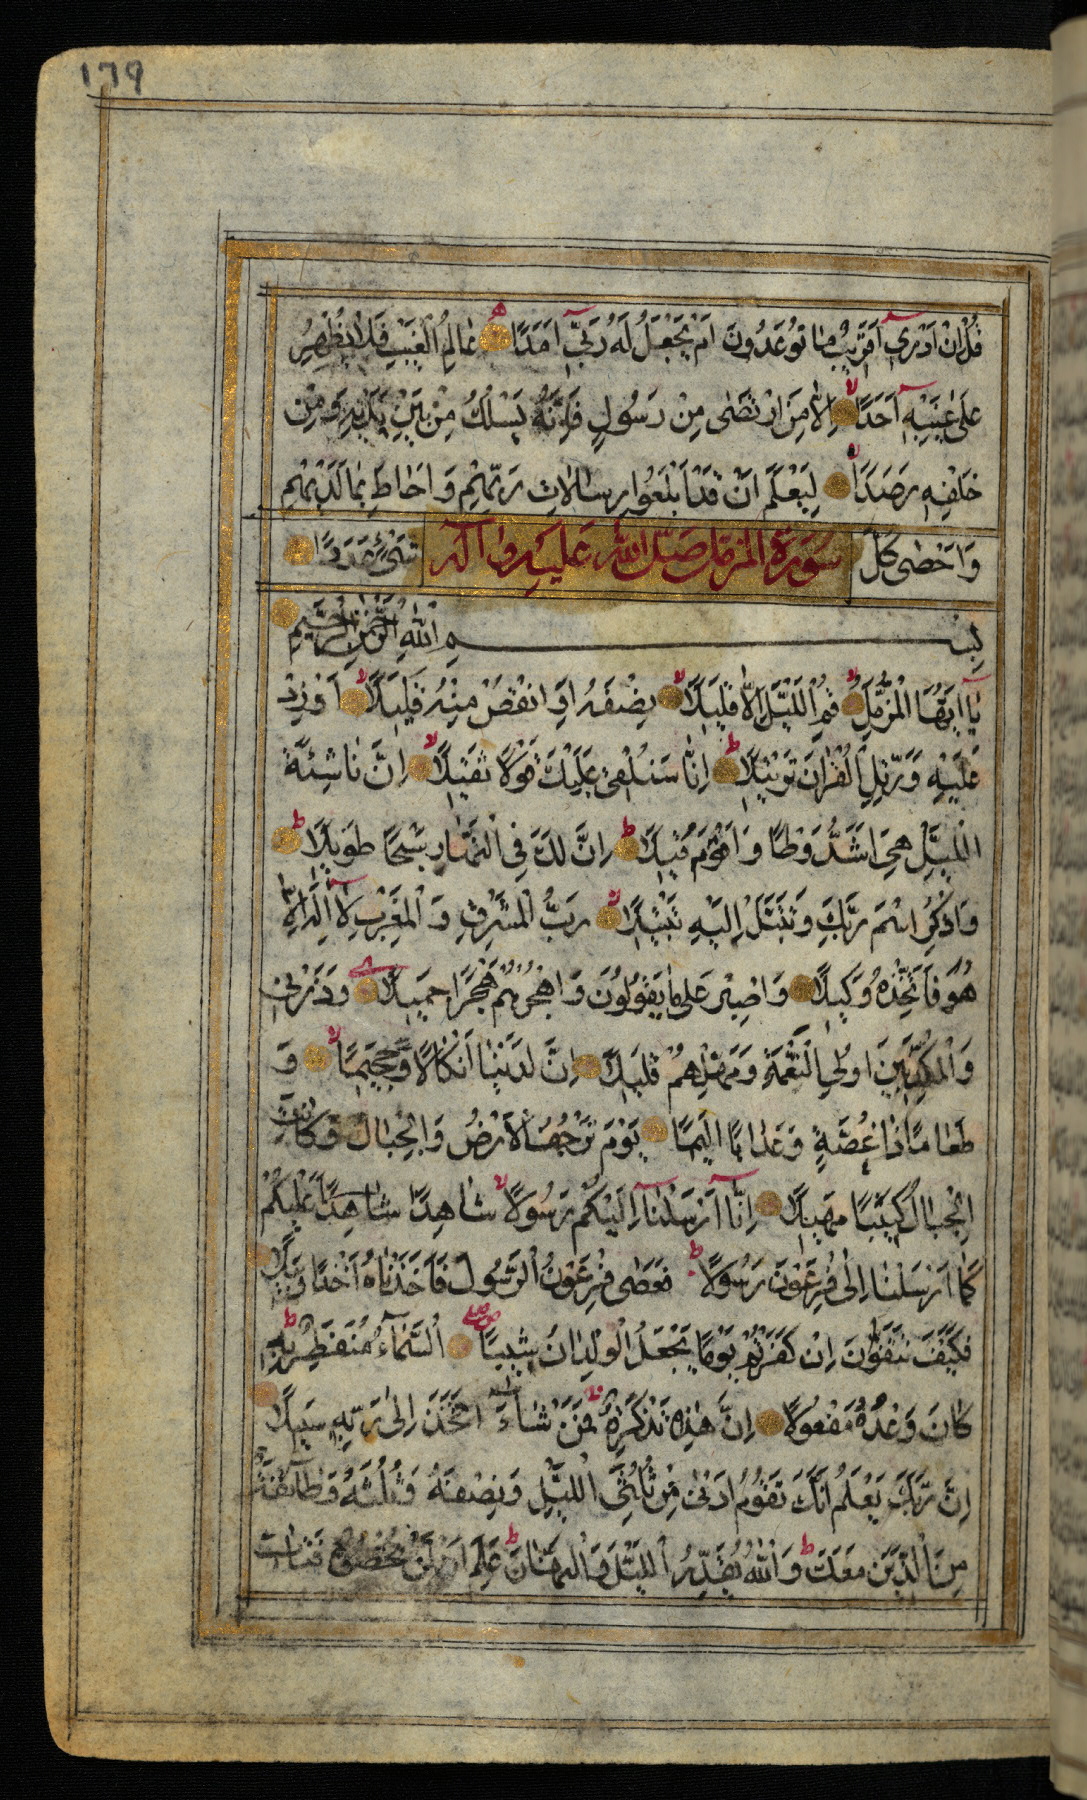 179
قُلْ اِنْ اَدْرِي اَقَرِيبٌ مٰا تُوعَدُونَ اَمْ يَجْعَلُ لَهُ رَبِّي اَمَدًا عٰالِمُ الْغَيْبِ فَلٰا يُظْهِرُ
عَلٰى غَيْبِهِ اَحَدًا اِلّٰا مَنِ ارْتَضٰى مِنْ رَسُولٍ فَاِنَّهُ يَسْلُكُ مِنْ بَيْنِ يَدَيْهِ وَمِنْ
خَلْفِهِ رَصَدًا لِيَعْلَمَ اَنْ قَدْ اَبْلَغُوا رِسٰالٰاتِ رَبِّهِمْ وَاَحٰاطَ بِمٰا لَدَيْهِمْ
وَاَحْصٰى كُلَّ شَىْءٍ عَدَدًا
سُورَة المزمل صَلَّى اللّٰه عَلَيْهِ وَاٰله
بِسْمِ اللّٰهِ الرَّحْمٰنِ الرَّحِيمِ
يٰا اَيُّهَا الْمُزَّمِّلُ قُمِ اللَّيْلَ اِلّٰا قَلِيلًا نِصْفَهُ اَوِ انْقُصْ مِنْهُ قَلِيلًا اَوْ زِدْ
عَلَيْهِ وَرَتِّلِ الْقُرْاٰنَ تَرْتِيلًا اِنّٰا سَنُلْقِي عَلَيْكَ قَوْلًا ثَقِيلًا اِنَّ نٰاشِئَةَ
اللَّيْلِ هِيَ اَشَدُّ وَطْاً وَاَقْوَمُ قِيلًا اِنَّ لَكَ فِي النَّهٰارِ سَبْحًا طَوِيلًا
وَاذْكُرِ اسْمَ رَبِّكَ وَتَبَتَّلْ اِلَيْهِ تَبْتِيلًا رَبُّ الْمَشْرِقِ وَالْمَغْرِبِ لٰا اِلٰهَ اِلّٰا
هُوَ فَاتَّخِذْهُ وَكِيلًا وَاصْبِرْ عَلٰى مٰا يَقُولُونَ وَاهْجُرْهُمْ هَجْرًا جَمِيلًا وَذَرْنِي
وَالْمُكَذِّبِينَ اُولِي النَّعْمَةِ وَمَهِّلْهُمْ قَلِيلًا اِنَّ لَدَيْنٰا اَنْكٰالًا وَجَحِيمًا وَ
طَعٰامًا ذٰا غُصَّةٍ وَعَذٰابًا اَلِيمًا يَوْمَ تَرْجُفُ الْاَرْضُ وَالْجِبٰالُ وَكٰانَتِ
الْجِبٰالُ كَثِيبًا مَهِيلًا اِنّٰا اَرْسَلْنٰا اِلَيْكُمْ رَسُولًا شٰاهِدًا شٰاهِدًا عَلَيْكُمْ
كَمٰا اَرْسَلْنٰا اِلٰى فِرْعَوْنَ رَسُولًا فَعَصٰى فِرْعَوْنُ الرَّسُولَ فَاَخَذْنٰاهُ اَخْذًا وَبِيلًا
فَكَيْفَ تَتَّقُونَ اِنْ كَفَرْتُمْ يَوْمًا يَجْعَلُ الْوِلْدٰانَ شِيبًا السَّمٰاءُ مُنْفَطِرٌ بِهِ
كٰانَ وَعْدُهُ مَفْعُولًا اِنَّ هٰذِهِ تَذْكِرَةٌ فَمَنْ شٰاءَ اتَّخَذَ اِلٰى رَبِّهِ سَبِيلًا
اِنَّ رَبَّكَ يَعْلَمُ اَنَّكَ تَقُومُ اَدْنٰى مِنْ ثُلُثَيِ اللَّيْلِ وَنِصْفَهُ وَثُلُثَهُ وَطٰائِفَةٌ
مِنَ الَّذِينَ مَعَكَ وَاللّٰهُ يُقَدِّرُ اللَّيْلَ وَالنَّهٰارَ عَلِمَ اَنْ لَنْ تُحْصُوهُ فَتٰابَ